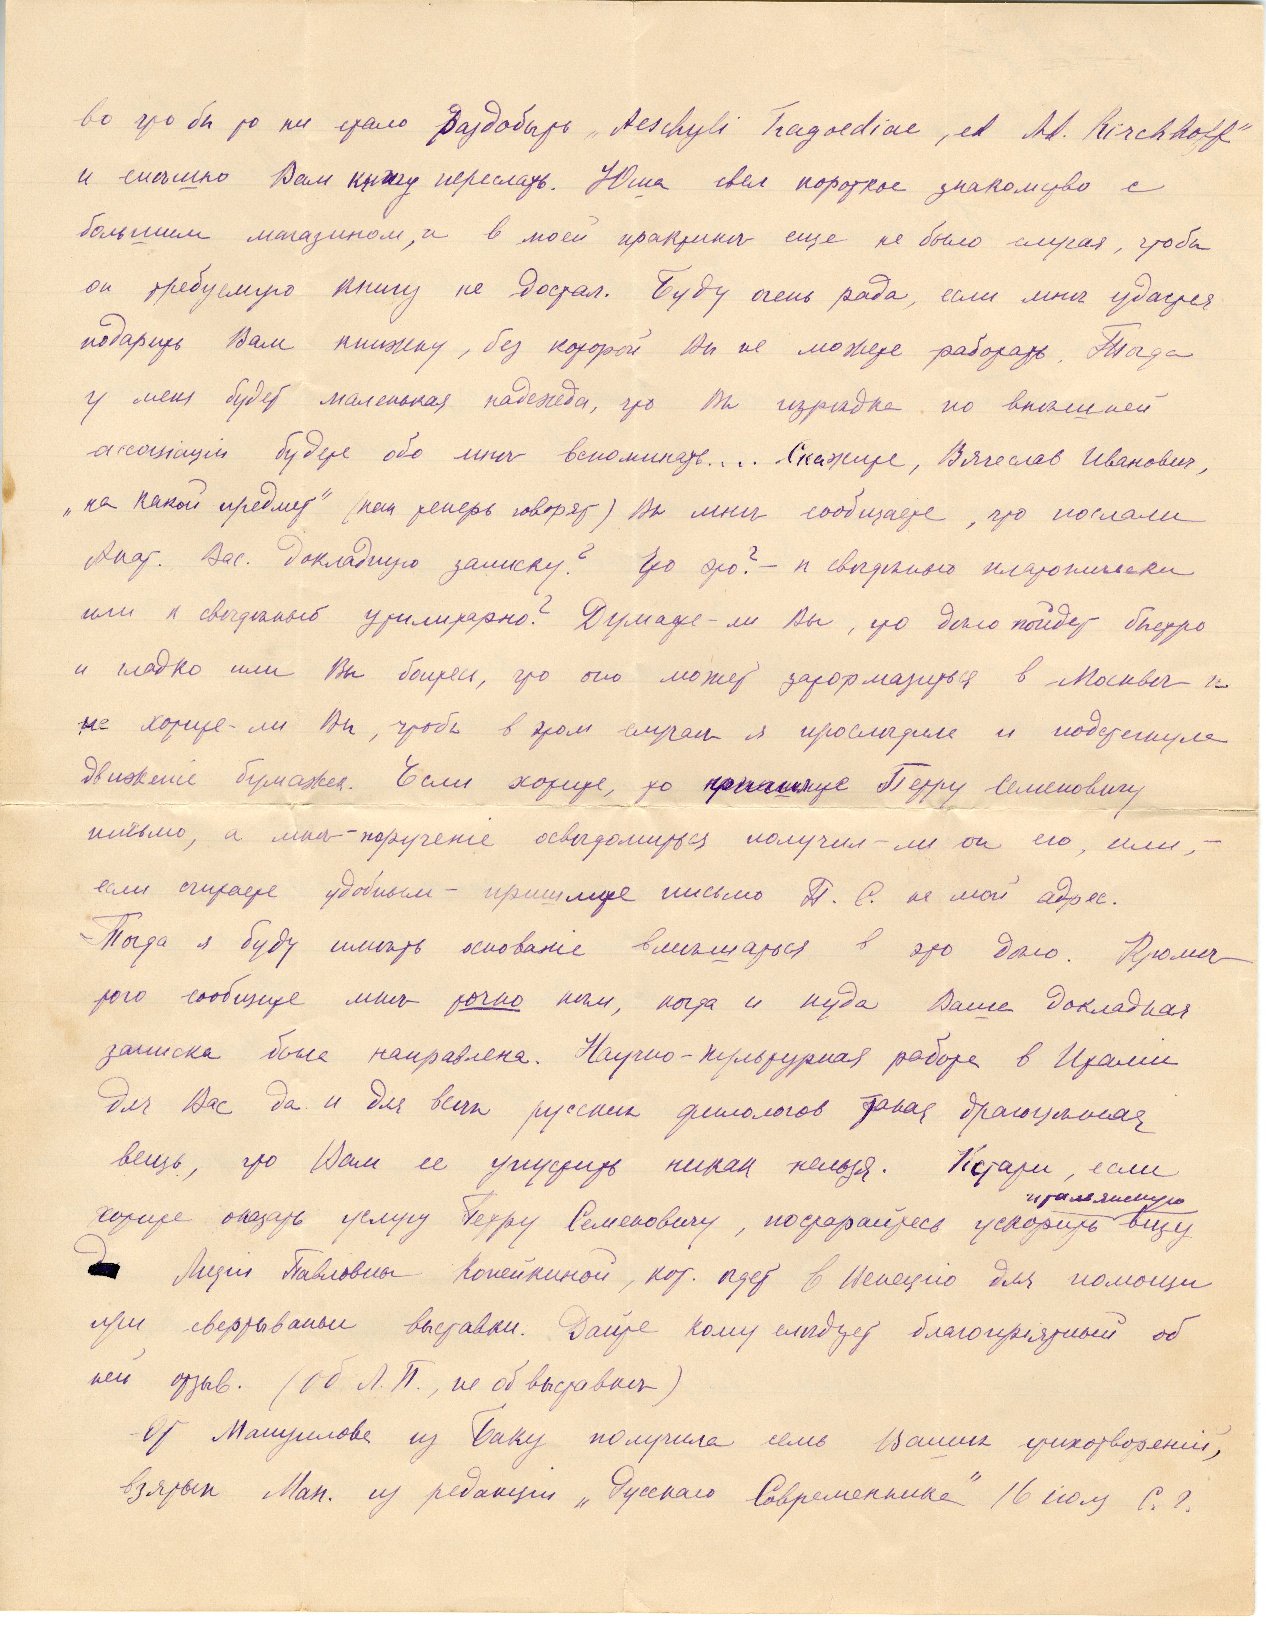 во что бы то ни стало раздобыть „Aeschyli Tragoediae, ed Ad. Kirchhoff"
и спѣшно Вам книгу переслать. Юша свел короткое знакомство с
большим магазином, и в моей практикѣ еще не было случая, чтобы
он требуемую книгу не достал. Буду очень рада, если мнѣ удастся
подарить Вам книжку, без которой Вы не можете работать. Тогда
у меня будет маленькая надежда, что Вы изрѣдка по внѣшней
ассоціаціи будете обо мнѣ вспоминать.... Скажите, Вячеслав Иванович,
„на какой предмет" (как теперь говорят) Вы мнѣ сообщаете, что послали
Анат. Вас. докладную записку? Что это? – к свѣдѣнью платонически
или к свѣдѣнью утилитарно? Думаете-ли Вы, что дѣло пойдет быстро
и гладко или Вы боитесь, что оно может затормазиться в Москвѣ и
не хотите-ли Вы, чтобы в этом случаѣ я прослѣдила и подстегнула
движеніе бумажек. Если хотите, то пришлите Петру Семеновичу
письмо, а мнѣ – порученіе освѣдомиться получил-ли он его, или, –
если считаете удобным – пришлите письмо П. С. на мой адрес.
Тогда я буду имѣть основаніе вмѣшаться в это дѣло. Кромѣ
того сообщите мнѣ точно кѣм, когда и куда Ваша докладная
записка была направлена. Научно-культурная работа в Италіи
для Вас да и для всѣх русских филологов такая драгоцѣнная
вещь, что Вам ее упустить никак нельзя. Кстати, если
хотите оказать услугу Петру Семеновичу, постарайтесь ускорить итальянскую визу
Лидіи Павловны Копейкиной, кот. ѣдет в Венецію для помощи
при свертываньи выставки. Дайте кому слѣдует благопріятный об
ней отзыв. (об Л. П., не об выставкѣ)
От Мануйлова из Баку получила семь Ваших стихотвореній,
взятых Ман. из редакціи „Русскаго Современника" 16 іюля с. г.